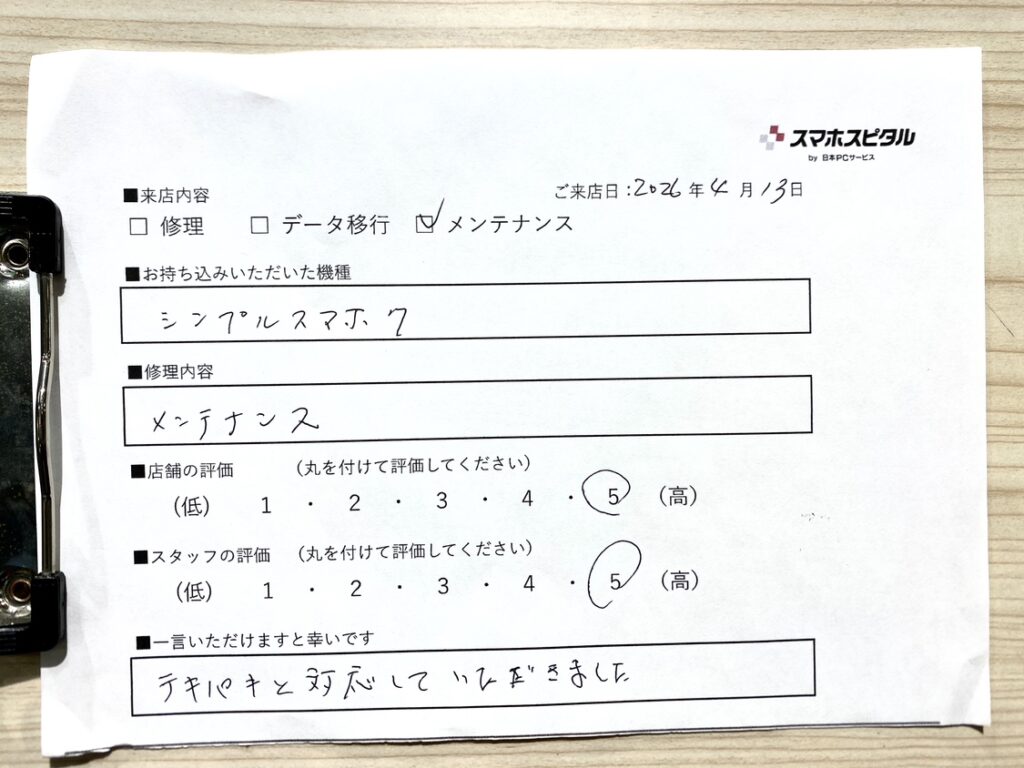 スマホスピタル
by 日本PCサービス
■来店内容
ご来店日:2026年4月13日
□ 修理 □ データ移行 ☑ メンテナンス
■お持ち込みいただいた機種
シンプルスマホ ク
■修理内容
メンテナンス
■店舗の評価 (丸を付けて評価してください)
(低) 1 ・ 2 ・ 3 ・ 4 ・ 5 (高)
■スタッフの評価 (丸を付けて評価してください)
(低) 1 ・ 2 ・ 3 ・ 4 ・ 5 (高)
■一言いただけますと幸いです
テキパキと対応していただきました